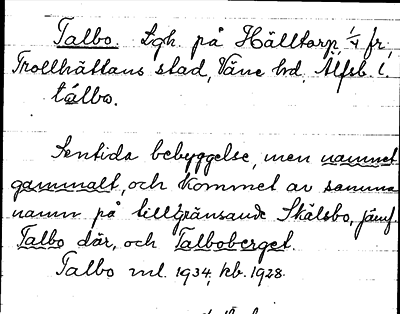 Talbo. Lgh. på Hälltorp, 1/4 fr,
Trollhättans stad, Väne hd, Älfsb. l.
tálbo.
Sentida bebyggelse, men namnet
gammalt, och kommet av samma
namn på tillgränsande Skälsbo, jämf.
Talbo där, och Talboberget.
Talbo ml. 1934, kb. 1928.